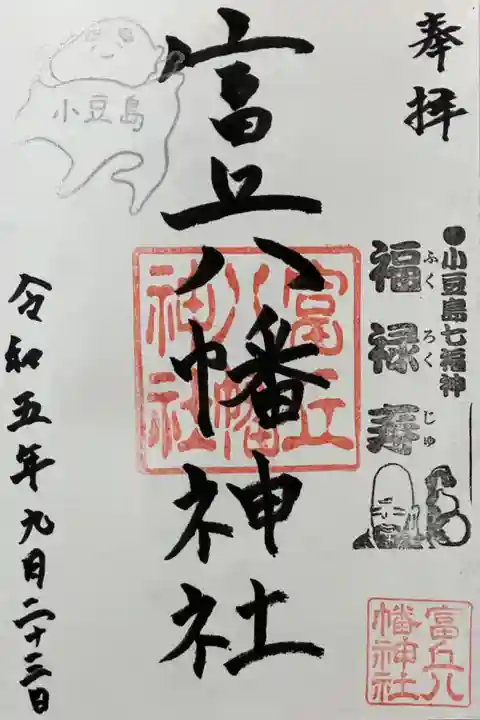 奉拝
●小豆島七福神
福禄寿
ふく ろく じゅ
富丘八幡神社
富丘
八幡
神社
富丘八
幡神社
小豆島
令和五年九月二十三日